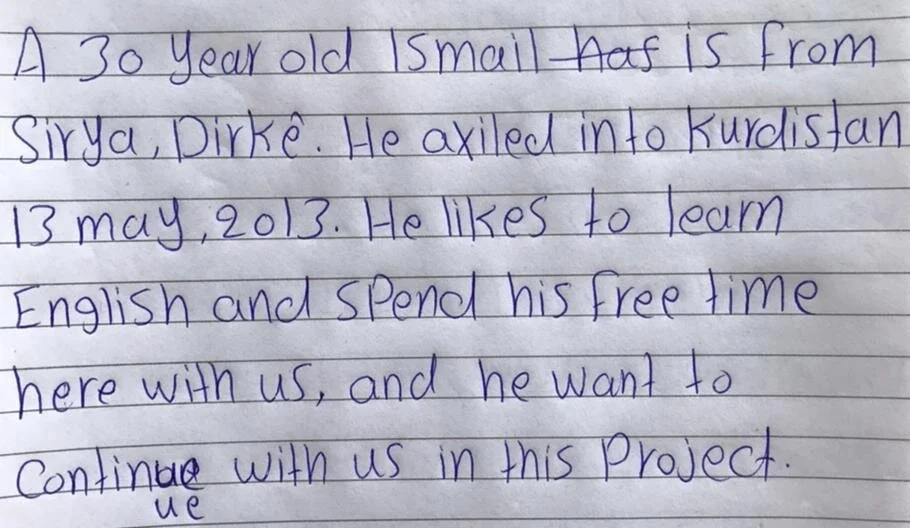 A 30 year old Ismail has is from
Sirya, Dirkê. He axiled into Kurdistan
13 may, 2013. He likes to learn
English and spend his free time
here with us, and he want to
Continue with us in this Project.
ue